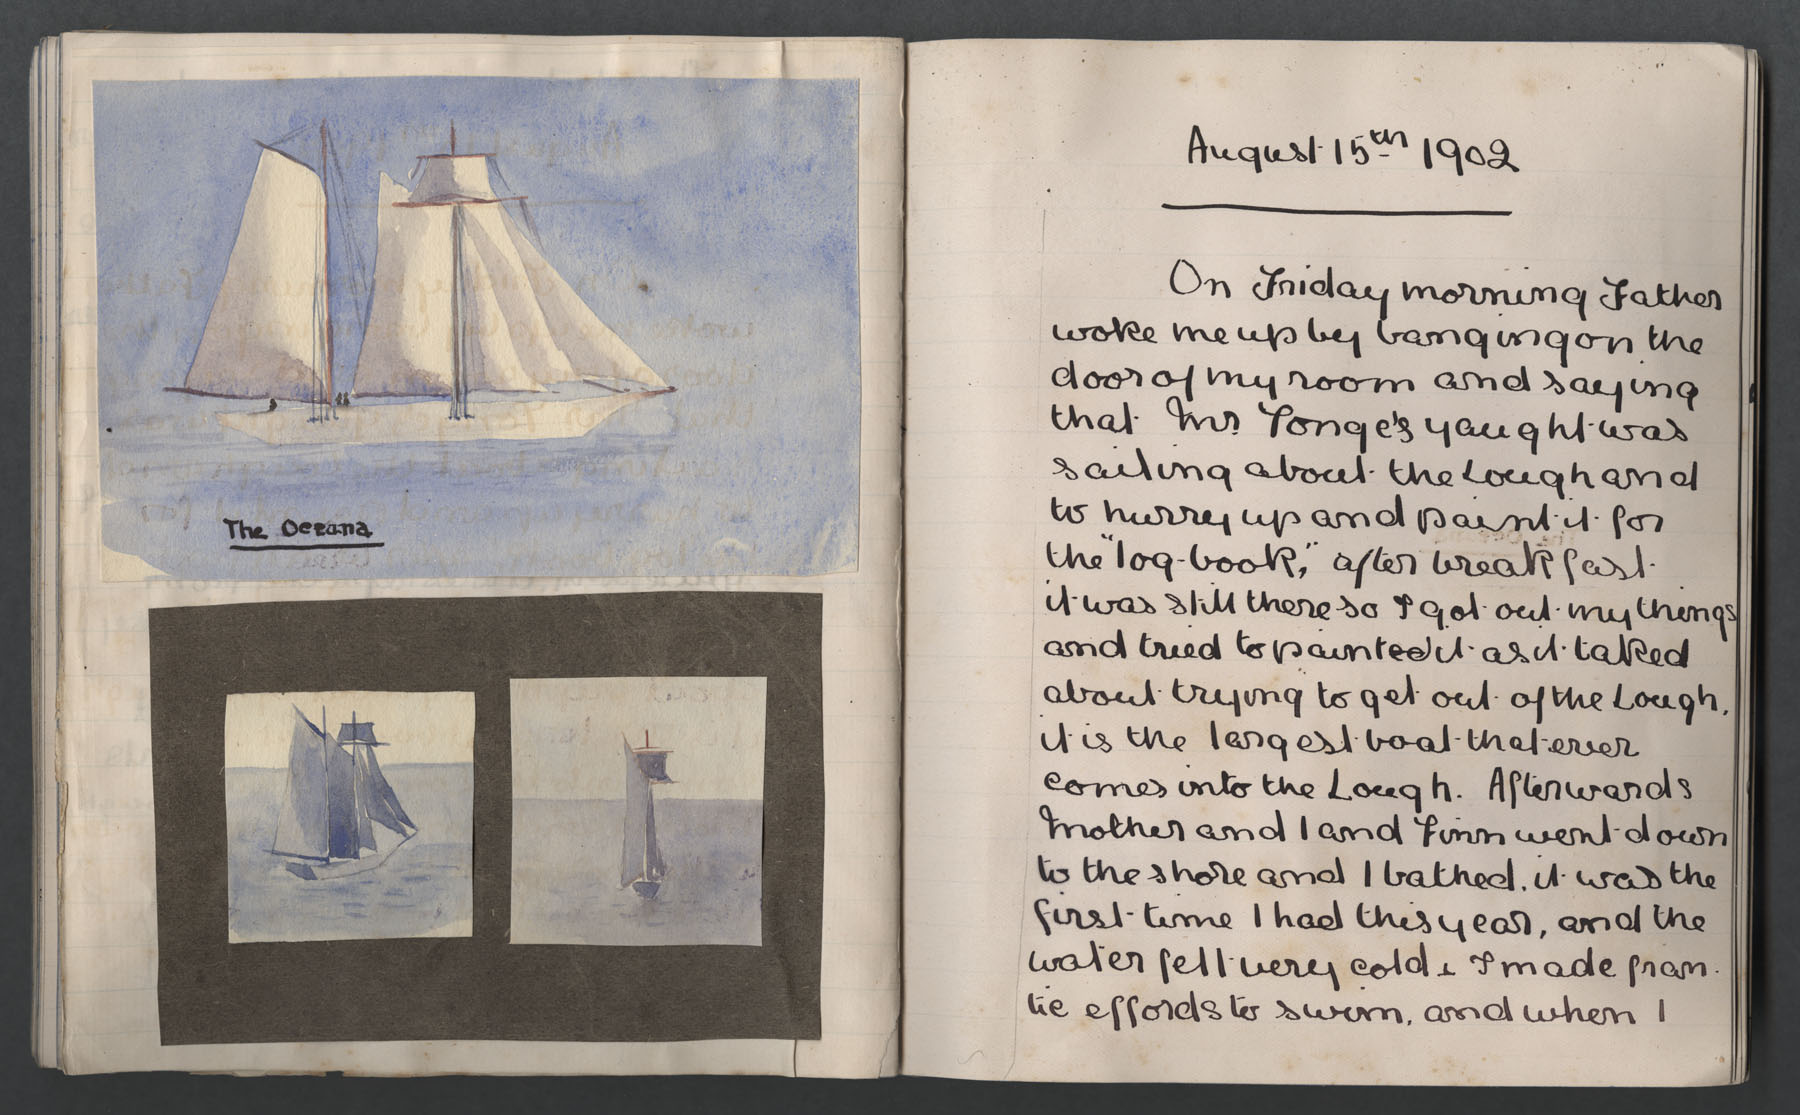 The Oceana
August 15th 1902
On Friday morning Father
woke me up by banging on the
door of my room and saying
that Mr. Tonge's yaught was
sailing about the Lough and
to hurry up and paint it for
the "log-book," after breakfast
it was still there so I got out my things
and tried to painted it as it taked
about trying to get out of the Lough,
it is the largest boat that ever
comes into the Lough. Afterwards
Mother and I and Finn went down
to the shore and I bathed, it was the
first time I had this year, and the
water felt very cold & I made fran-
tic effords to swim, and when I